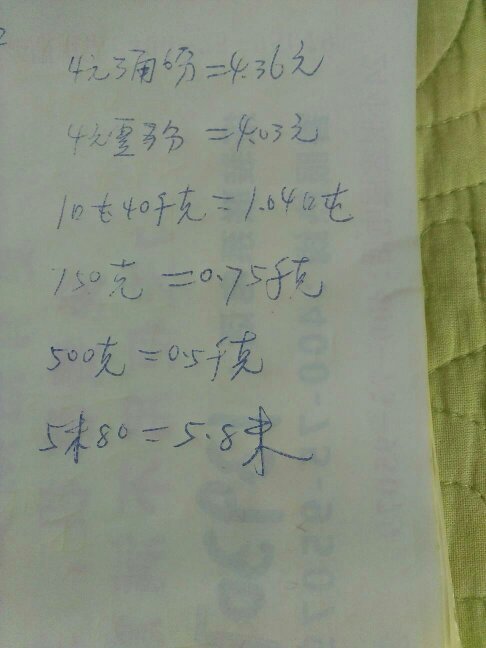 4元3角6分=4.36元
4元零3分=4.03元
1口屯40千克=1.04口屯
150克=0.75千克
500克=0.5千克
5米80=5.8米